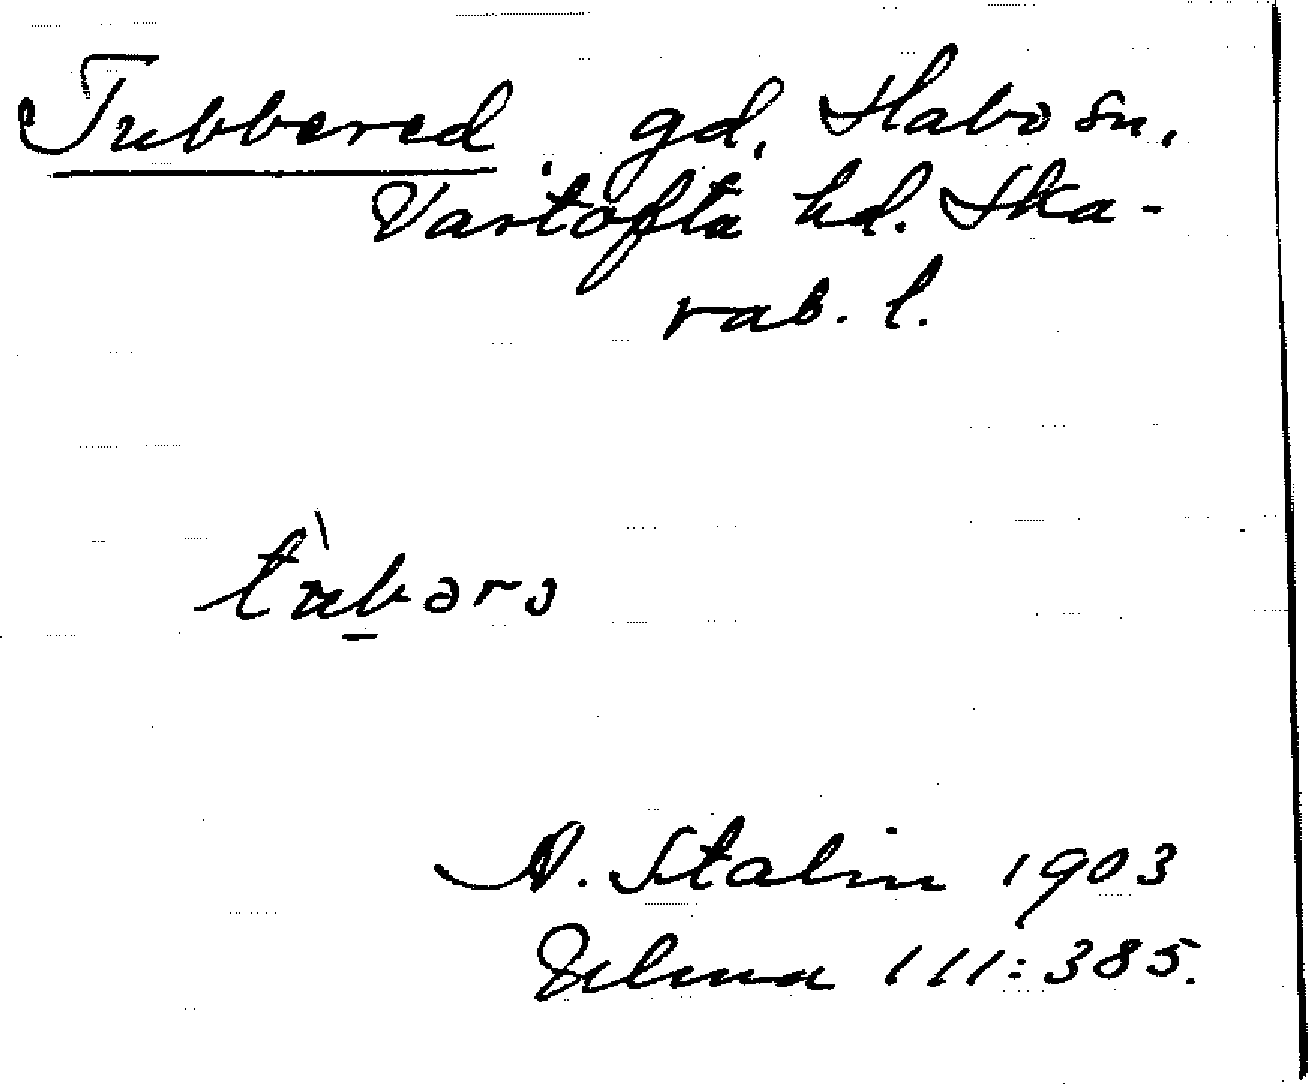 Tubbered, gd, Habo sn,
Vartofta hd. Ska-
rab. l.
tùbərs
A. Stalin 1903
Ulma 111:385.